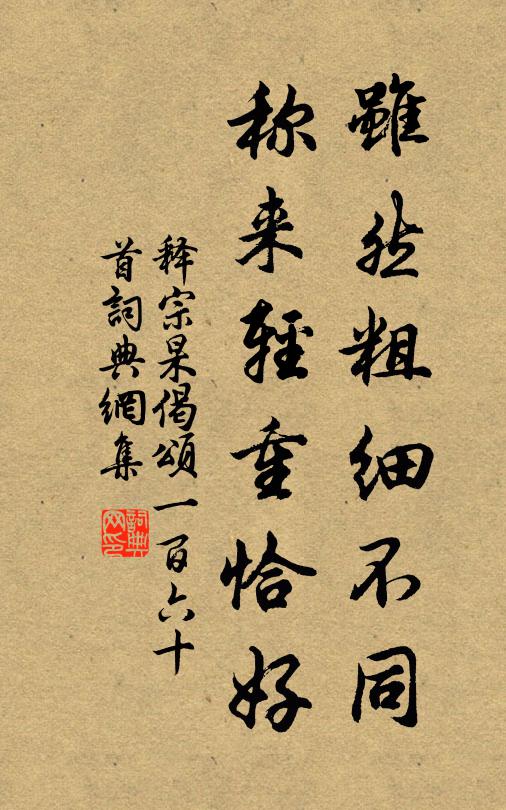 雖然粗细不同
称来輕重恰好
释宗杲偈頌一百六十
首詞典網集
詞典
网印